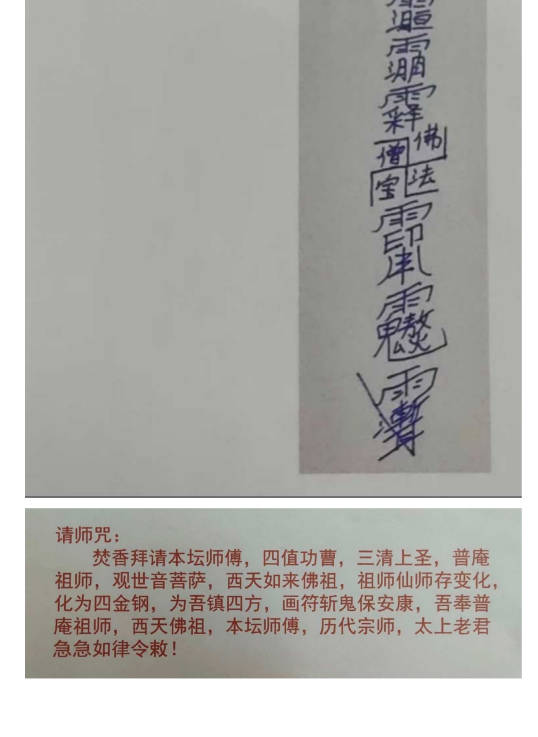 佛
僧
法
宝
请师咒：
焚香拜请本坛师傅，四值功曹，三清上圣，普庵
祖师，观世音菩萨，西天如来佛祖，祖师仙师存变化，
化为四金钢，为吾镇四方，画符斩鬼保安康，吾奉普
庵祖师，西天佛祖，本坛师傅，历代宗师，太上老君
急急如律令敕！